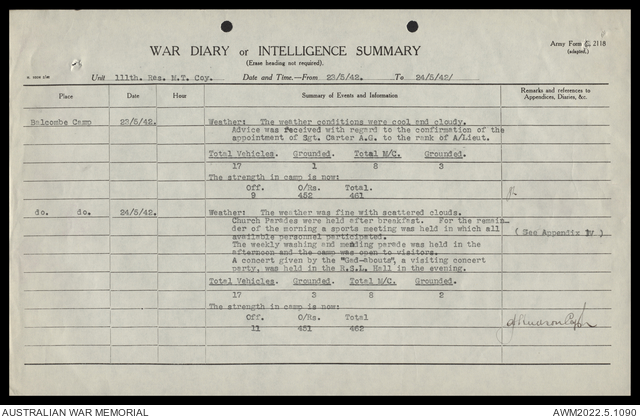 WAR DIARY or INTELLIGENCE SUMMARY
(Erase heading not required).
Army Form C. 2118
(adapted.)
Unit 111th. Res. M.T. Coy. Date and Time.—From 23/5/42. To 24/5/42/
Place Date Hour Summary of Events and Information Remarks and references to
Appendices, Diaries, &c.
Balcombe Camp 23/5/42. Weather: The weather conditions were cool and cloudy.
Advice was received with regard to the confirmation of the
appointment of Sgt. Carter A.G. to the rank of A/Lieut.
Total Vehicles. Grounded. Total M/C. Grounded.
17 1 8 3
The strength in camp is now:
Off. O/Rs. Total.
9 452 461
do. do. 24/5/42. Weather: The weather was fine with scattered clouds.
Church Parades were held after breakfast. For the remain-
der of the morning a sports meeting was held in which all
available personnel participated. (See Appendix IV)
The weekly washing and mending parade was held in the
afternoon and the camp was open to visitors.
A concert given by the "Gad-abouts", a visiting concert
party, was held in the R.S.L. Hall in the evening.
Total Vehicles. Grounded. Total M/C. Grounded.
17 3 8 2
The strength in camp is now:
Off. O/Rs. Total
11 451 462
AUSTRALIAN WAR MEMORIAL
AWM2022.5.1090